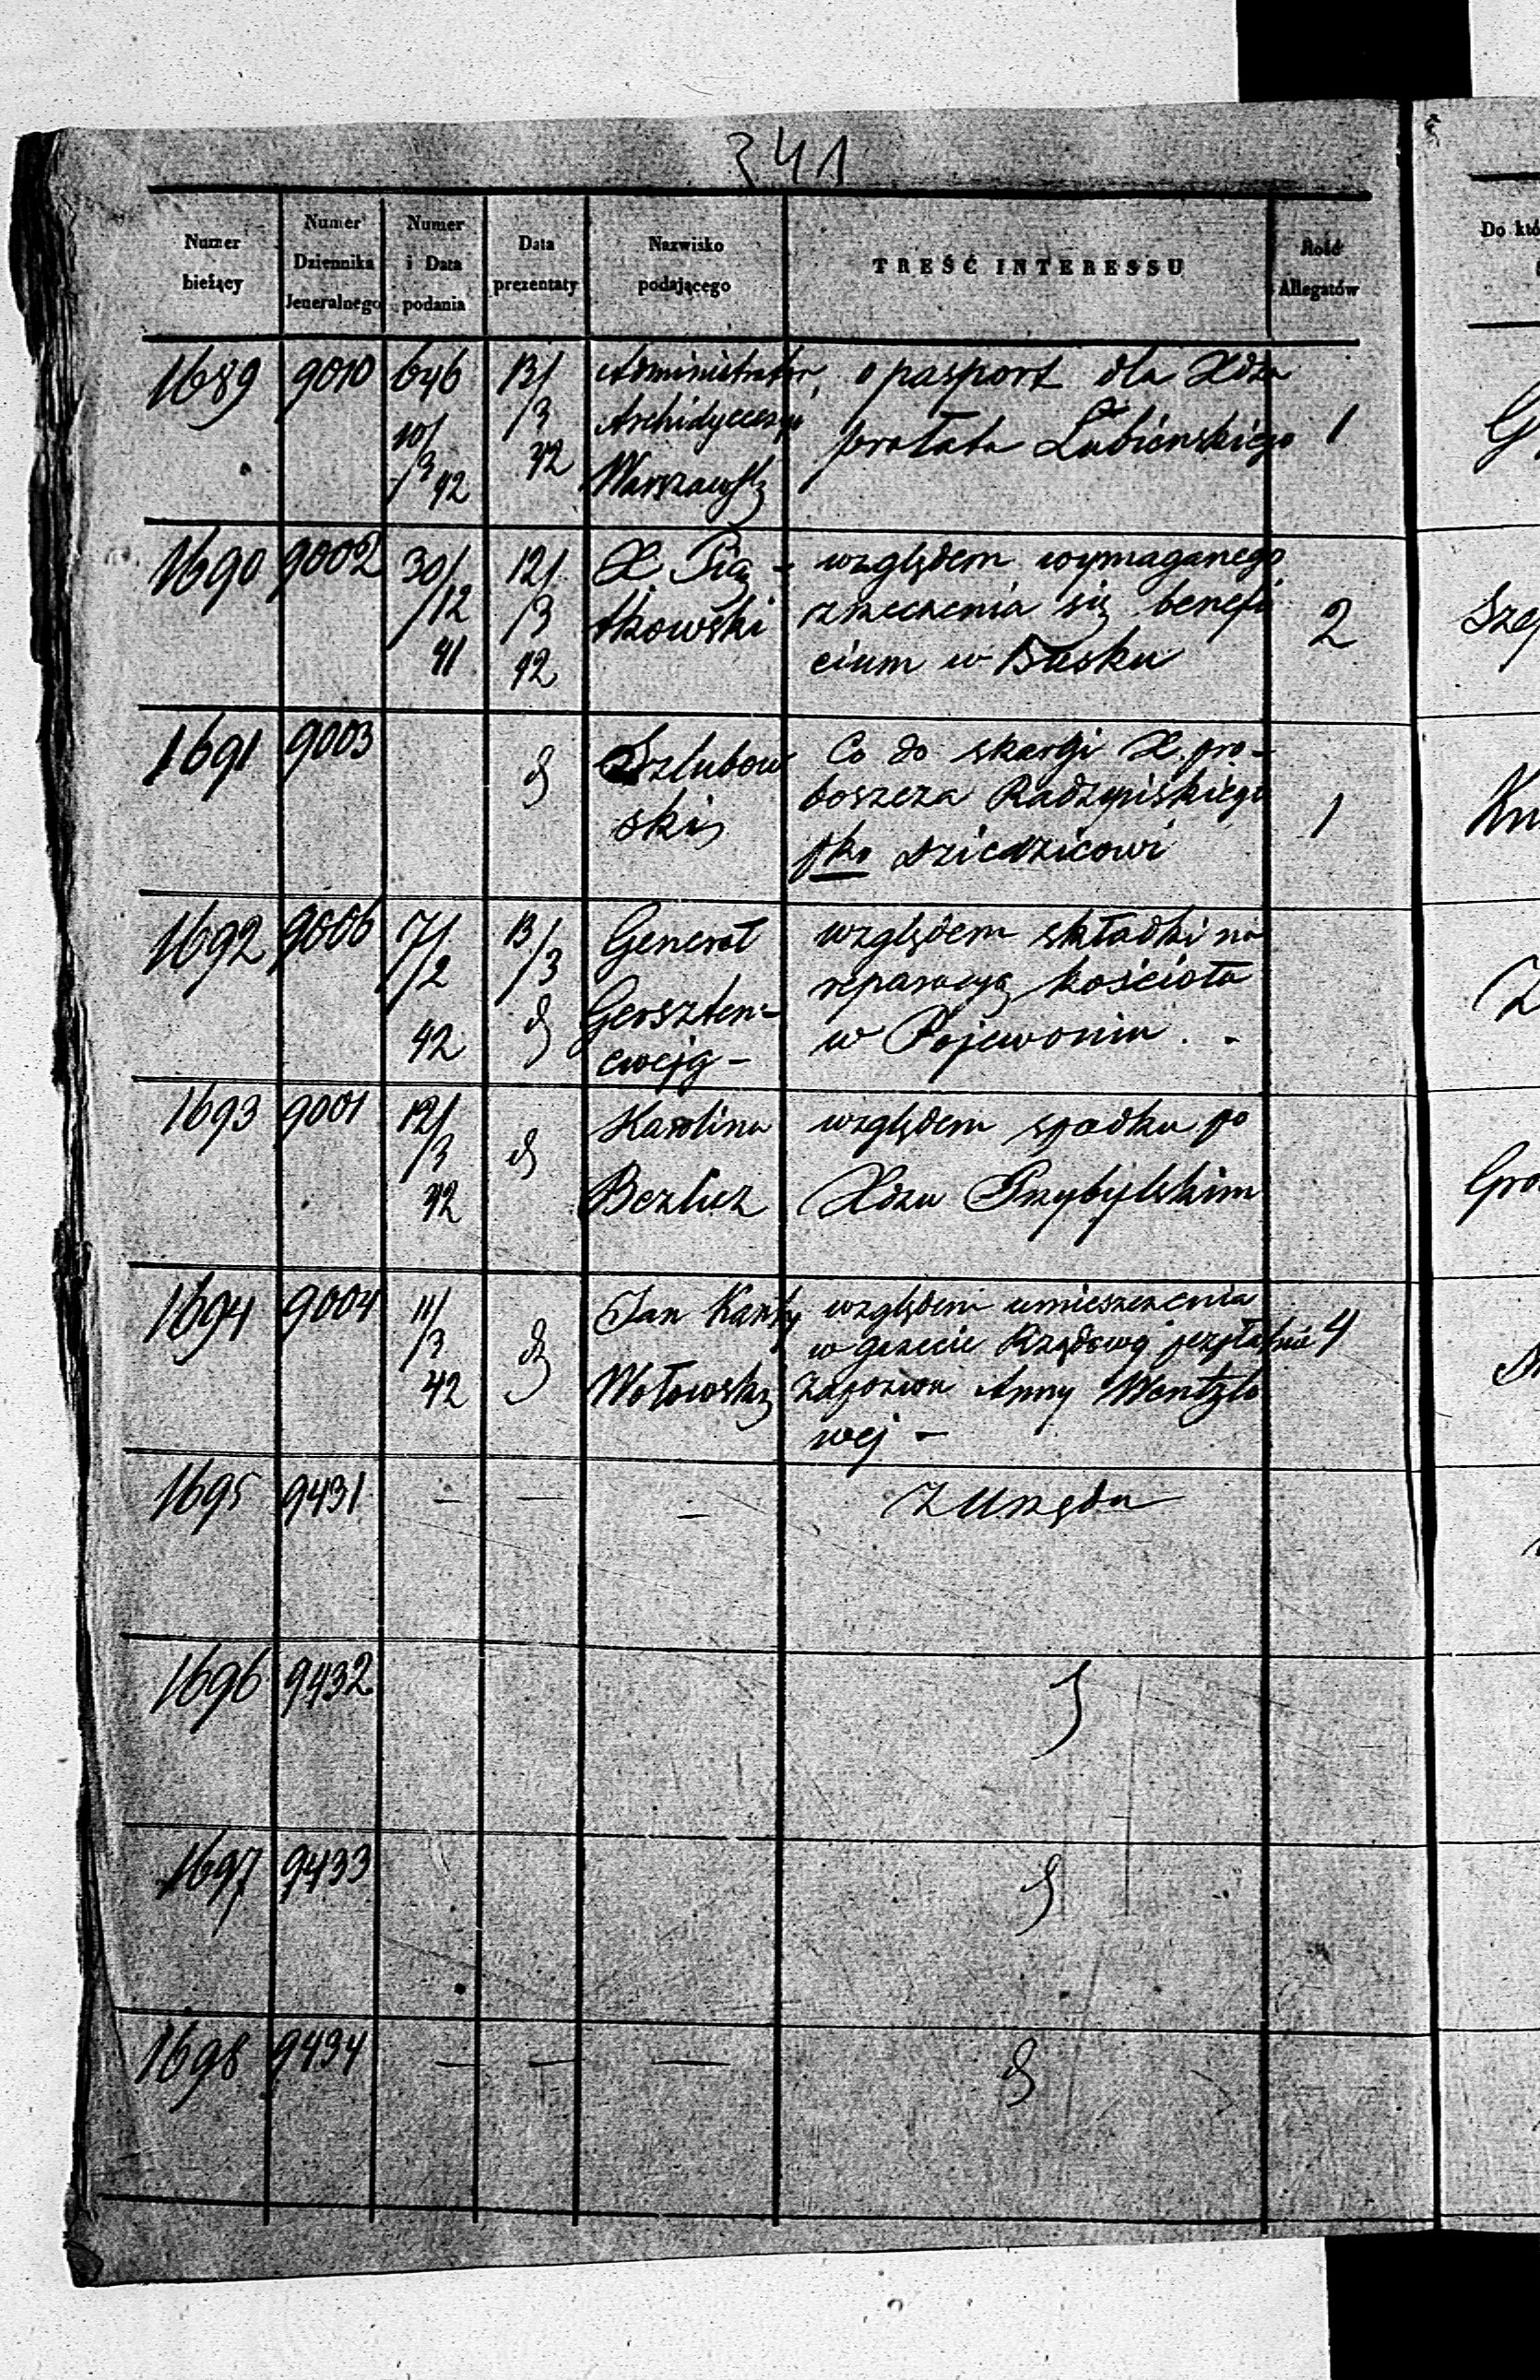 341
Numer bieżący
Numer Dziennika Jeneralnego
Numer i Data podania
Data prezentaty
Nazwisko podającego
TREŚĆ INTERESSU
Ilość Allegatów
Do któ
1689 9010 646 10/3 42 13/3 42
Administrator
Archidyecezyi
Warszawsk
o pasport dla Xdza
prałata Łubińskiego
1
1690 9002 30/12 41 12/3 42
X. Pią-
tkowski
względem wymaganego
zrzeczenia się benefi
cium w Busku
2
1691 9003 d
Szlubow
ski
Co do skargi X. pro-
boszcza Radzyńskiego
pko Dziedzicowi
1
1692 9006 7/2 42 13/3 d
Generał
Gerszten-
cwejg -
względem składki na
reparacyą kościoła
w Pojewoniu. -
1693 9001 12/3 42 d
Karolina
Bezluz
względem spadku po
Xdzu Przybylskim
1694 9004 11/3 42 d
Jan Kanty
Wołowski
względem umieszczenia
w gazecie Rządowej bezpłatnie
zapozwu Anny Wentzlo
wej -
4
1695 9431 - - -
z urzędu
1696 9432
d
1697 9433
d
1698 9434 - - -
d